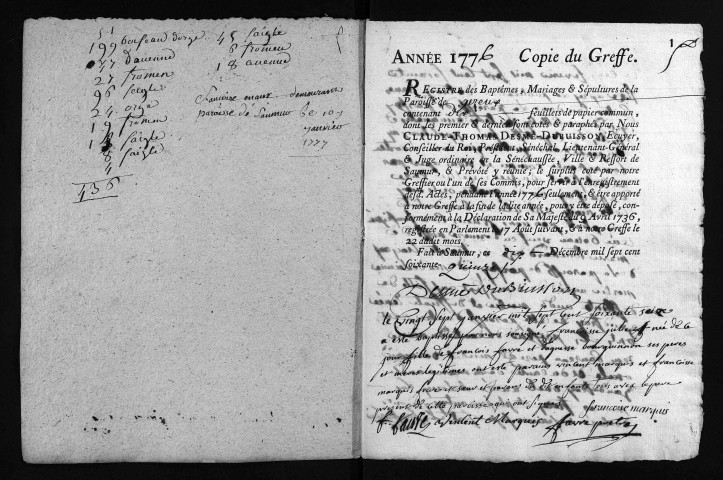 51
199 boisseau dorge
77 Davenne
27 fromen
96 seigle
24 orge
19 fromen
14 saigle
8 saigle
4
436
45 saigle
6 fromen
18 avenne
demeurant
paroisse de Saumur Le 10
janvier
1777
1
ANNÉE 1776 Copie du Greffe.
REGISTRE des Baptêmes, Mariages & Sépultures de la
Paroisse de
contenant dix feuillets de papier commun,
dont les premier & dernier sont cotés & paraphés par Nous
CLAUDE-THOMAS DESMÉ-DUBUISSON, Ecuyer,
Conseiller du Roi, Président, Sénéchal, Lieutenant-Général
& Juge ordinaire de la Sénéchaussée, Ville & Ressort de
Saumur, & Prévôté y réunie; le surplus coté par notre
Greffier ou l'un de ses Commis, pour servir à l'enregistrement
desd. Actes, pendant l'année 1776 seulement, & être apporté
à notre Greffe à la fin de ladite année, pour y être déposé, con-
formément à la Déclaration de Sa Majesté du 9 Avril 1736,
registrée en Parlement le 17 Août suivant, & à notre Greffe le
22 dudit mois.
Fait à Saumur, ce dix Décembre mil sept cent
soixante-quinze
Desmé Dubuisson
le Vingt sept janvier mil sept cent soixante seize
a esté baptisée par moy soussigné francoise julie née de ce
jour fille de francois favre et de ses peres
et meres legitimes ont esté parains vincent marquis et francoise
marquis frere et sœur et parens de l'enfant lesquels avec le pere
present de cette paroisse qui ont signé
francoise marquis
f. favre vincent Marquis favre